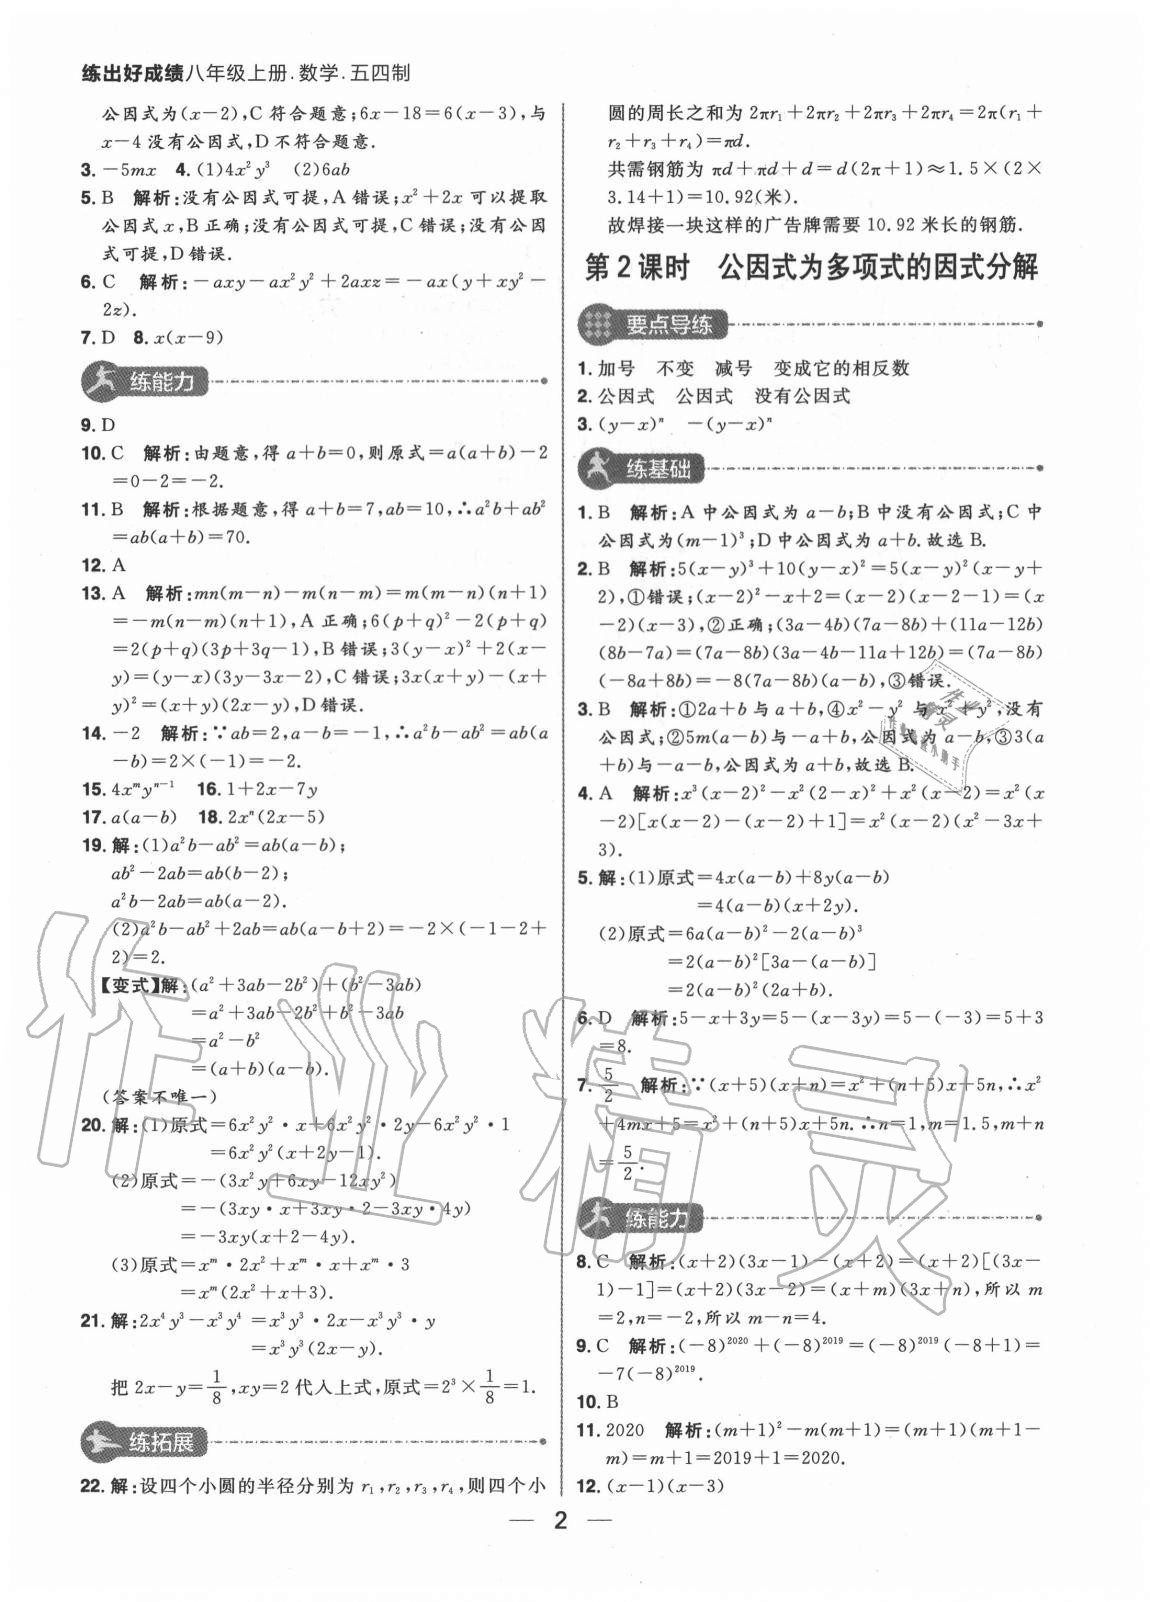 练出好成绩八年级上册.数学.五四制
公因式为(x－2),C 符合题意;6x－18＝6(x－3),与
x－4 没有公因式,D 不符合题意.
3. －5mx　4. (1)4x²y³　(2)6ab
5. B　解析:没有公因式可提,A 错误;x²＋2x 可以提取
公因式 x,B 正确;没有公因式可提,C 错误;没有公因
式可提,D 错误.
6. C　解析:－axy－ax²y²＋2axz＝－ax(y＋xy²－
2z).
7. D　8. x(x－9)
练能力
9. D
10. C　解析:由题意,得 a＋b＝0,则原式＝a(a＋b)－2
＝0－2＝－2.
11. B　解析:根据题意,得 a＋b＝7,ab＝10,∴a²b＋ab²
＝ab(a＋b)＝70.
12. A
13. A　解析:mn(m－n)－m(n－m)＝m(m－n)(n＋1)
＝－m(n－m)(n＋1),A 正确;6(p＋q)²－2(p＋q)
＝2(p＋q)(3p＋3q－1),B 错误;3(y－x)²＋2(x－
y)＝(y－x)(3y－3x－2),C 错误;3x(x＋y)－(x＋
y)²＝(x＋y)(2x－y),D 错误.
14. －2　解析:∵ab＝2,a－b＝－1,∴a²b－ab²＝ab(a
－b)＝2×(－1)＝－2.
15. 4xᵐyⁿ⁻¹　16. 1＋2x－7y
17. a(a－b)　18. 2xⁿ(2x－5)
19. 解:(1)a²b－ab²＝ab(a－b);
ab²－2ab＝ab(b－2);
a²b－2ab＝ab(a－2).
(2)a²b－ab²＋2ab＝ab(a－b＋2)＝－2×(－1－2＋
2)＝2.
【变式】解:(a²＋3ab－2b²)＋(b²－3ab)
＝a²＋3ab－2b²＋b²－3ab
＝a²－b²
＝(a＋b)(a－b).
(答案不唯一)
20. 解:(1)原式＝6x²y²·x＋6x²y²·2y－6x²y²·1
＝6x²y²(x＋2y－1).
(2)原式＝－(3x²y＋6xy－12xy²)
＝－(3xy·x＋3xy·2－3xy·4y)
＝－3xy(x＋2－4y).
(3)原式＝xᵐ·2x²＋xᵐ·x＋xᵐ·3
＝xᵐ(2x²＋x＋3).
21. 解:2x⁴y³－x³y⁴＝x³y³·2x－x³y³·y
＝x³y³(2x－y).
把 2x－y＝1/8,xy＝2 代人上式,原式＝2³×1/8＝1.
练拓展
22. 解:设四个小圆的半径分别为 r₁,r₂,r₃,r₄,则四个小
圆的周长之和为 2πr₁＋2πr₂＋2πr₃＋2πr₄＝2π(r₁＋
r₂＋r₃＋r₄)＝πd.
共需钢筋为 πd＋πd＋d＝d(2π＋1)≈1.5×(2×
3.14＋1)＝10.92(米).
故焊接一块这样的广告牌需要 10.92 米长的钢筋.
第 2 课时　公因式为多项式的因式分解
要点导练
1. 加号　不变　减号　变成它的相反数
2. 公因式　公因式　没有公因式
3. (y－x)ⁿ　－(y－x)ⁿ
练基础
1. B　解析:A 中公因式为 a－b;B 中没有公因式;C 中
公因式为(m－1)³;D 中公因式为 a＋b.故选 B.
2. B　解析:5(x－y)³＋10(y－x)²＝5(x－y)²(x－y＋
2),①错误;(x－2)²－x＋2＝(x－2)(x－2－1)＝(x
－2)(x－3),②正确;(3a－4b)(7a－8b)＋(11a－12b)
(8b－7a)＝(7a－8b)(3a－4b－11a＋12b)＝(7a－8b)
(－8a＋8b)＝－8(7a－8b)(a－b),③错误.
3. B　解析:①2a＋b 与 a＋b,④x²－y² 与 x²＋y²,没有
公因式;②5m(a－b)与－a＋b,公因式为 a－b,③3(a
＋b)与－a－b,公因式为 a＋b.故选 B.
4. A　解析:x³(x－2)²－x²(2－x)²＋x²(x－2)＝x²(x
－2)[x(x－2)－(x－2)＋1]＝x²(x－2)(x²－3x＋
3).
5. 解:(1)原式＝4x(a－b)＋8y(a－b)
＝4(a－b)(x＋2y).
(2)原式＝6a(a－b)²－2(a－b)³
＝2(a－b)²[3a－(a－b)]
＝2(a－b)²(2a＋b).
6. D　解析:5－x＋3y＝5－(x－3y)＝5－(－3)＝5＋3
＝8.
7. 5/2　解析:∵(x＋5)(x＋n)＝x²＋(n＋5)x＋5n,∴x²
＋4mx＋5＝x²＋(n＋5)x＋5n.∴n＝1,m＝1.5,m＋n
＝5/2.
练能力
8. C　解析:(x＋2)(3x－1)－(x＋2)＝(x＋2)[(3x－
1)－1]＝(x＋2)(3x－2)＝(x＋m)(3x＋n),所以 m
＝2,n＝－2,所以 m－n＝4.
9. C　解析:(－8)²⁰²⁰＋(－8)²⁰¹⁹＝(－8)²⁰¹⁹(－8＋1)＝
－7(－8)²⁰¹⁹.
10. B
11. 2020　解析:(m＋1)²－m(m＋1)＝(m＋1)(m＋1－
m)＝m＋1＝2019＋1＝2020.
12. (x－1)(x－3)
— 2 —
作业精灵